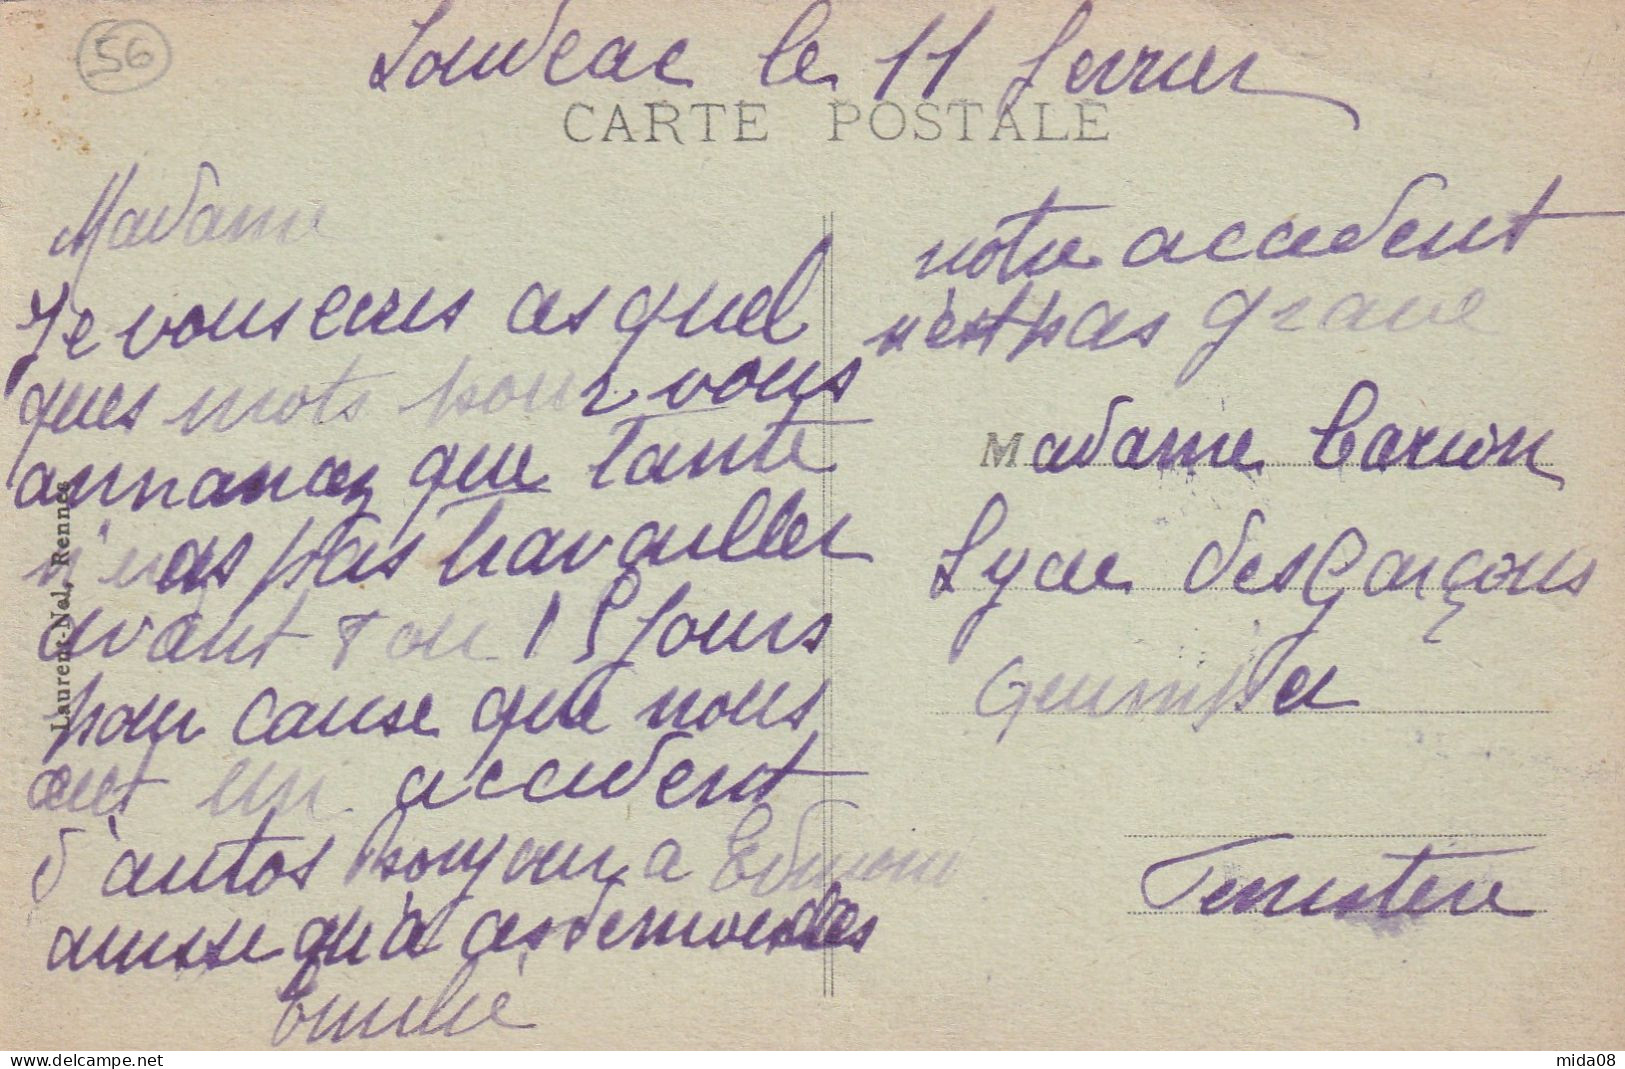 56
Loudeac le 11 fevrier
CARTE POSTALE
Madame
Je vous ecris ces quel
ques mots pour vous
annancez que tante
n'iras pas travailler
avant 8 ou 15 Jours
pour cause que nous
eut un accident
d'autos bonjour a Edmond
ausse qu'à ces demoiselles
Emilie
notre accident
n'est pas grave
Madame Carion
Lycee des Garçons
Quimper
Finistere
Laurent-Nel, Rennes
mida08